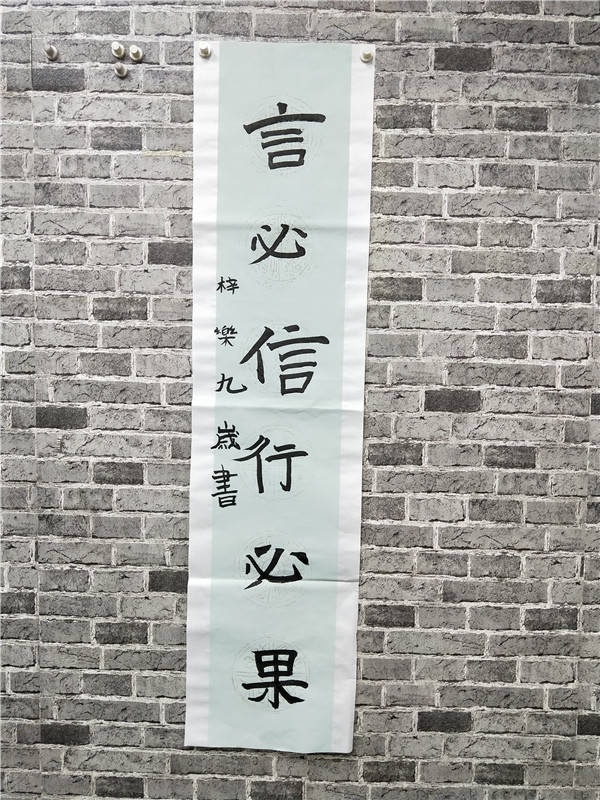 言必信行必果
梓樂九歲書